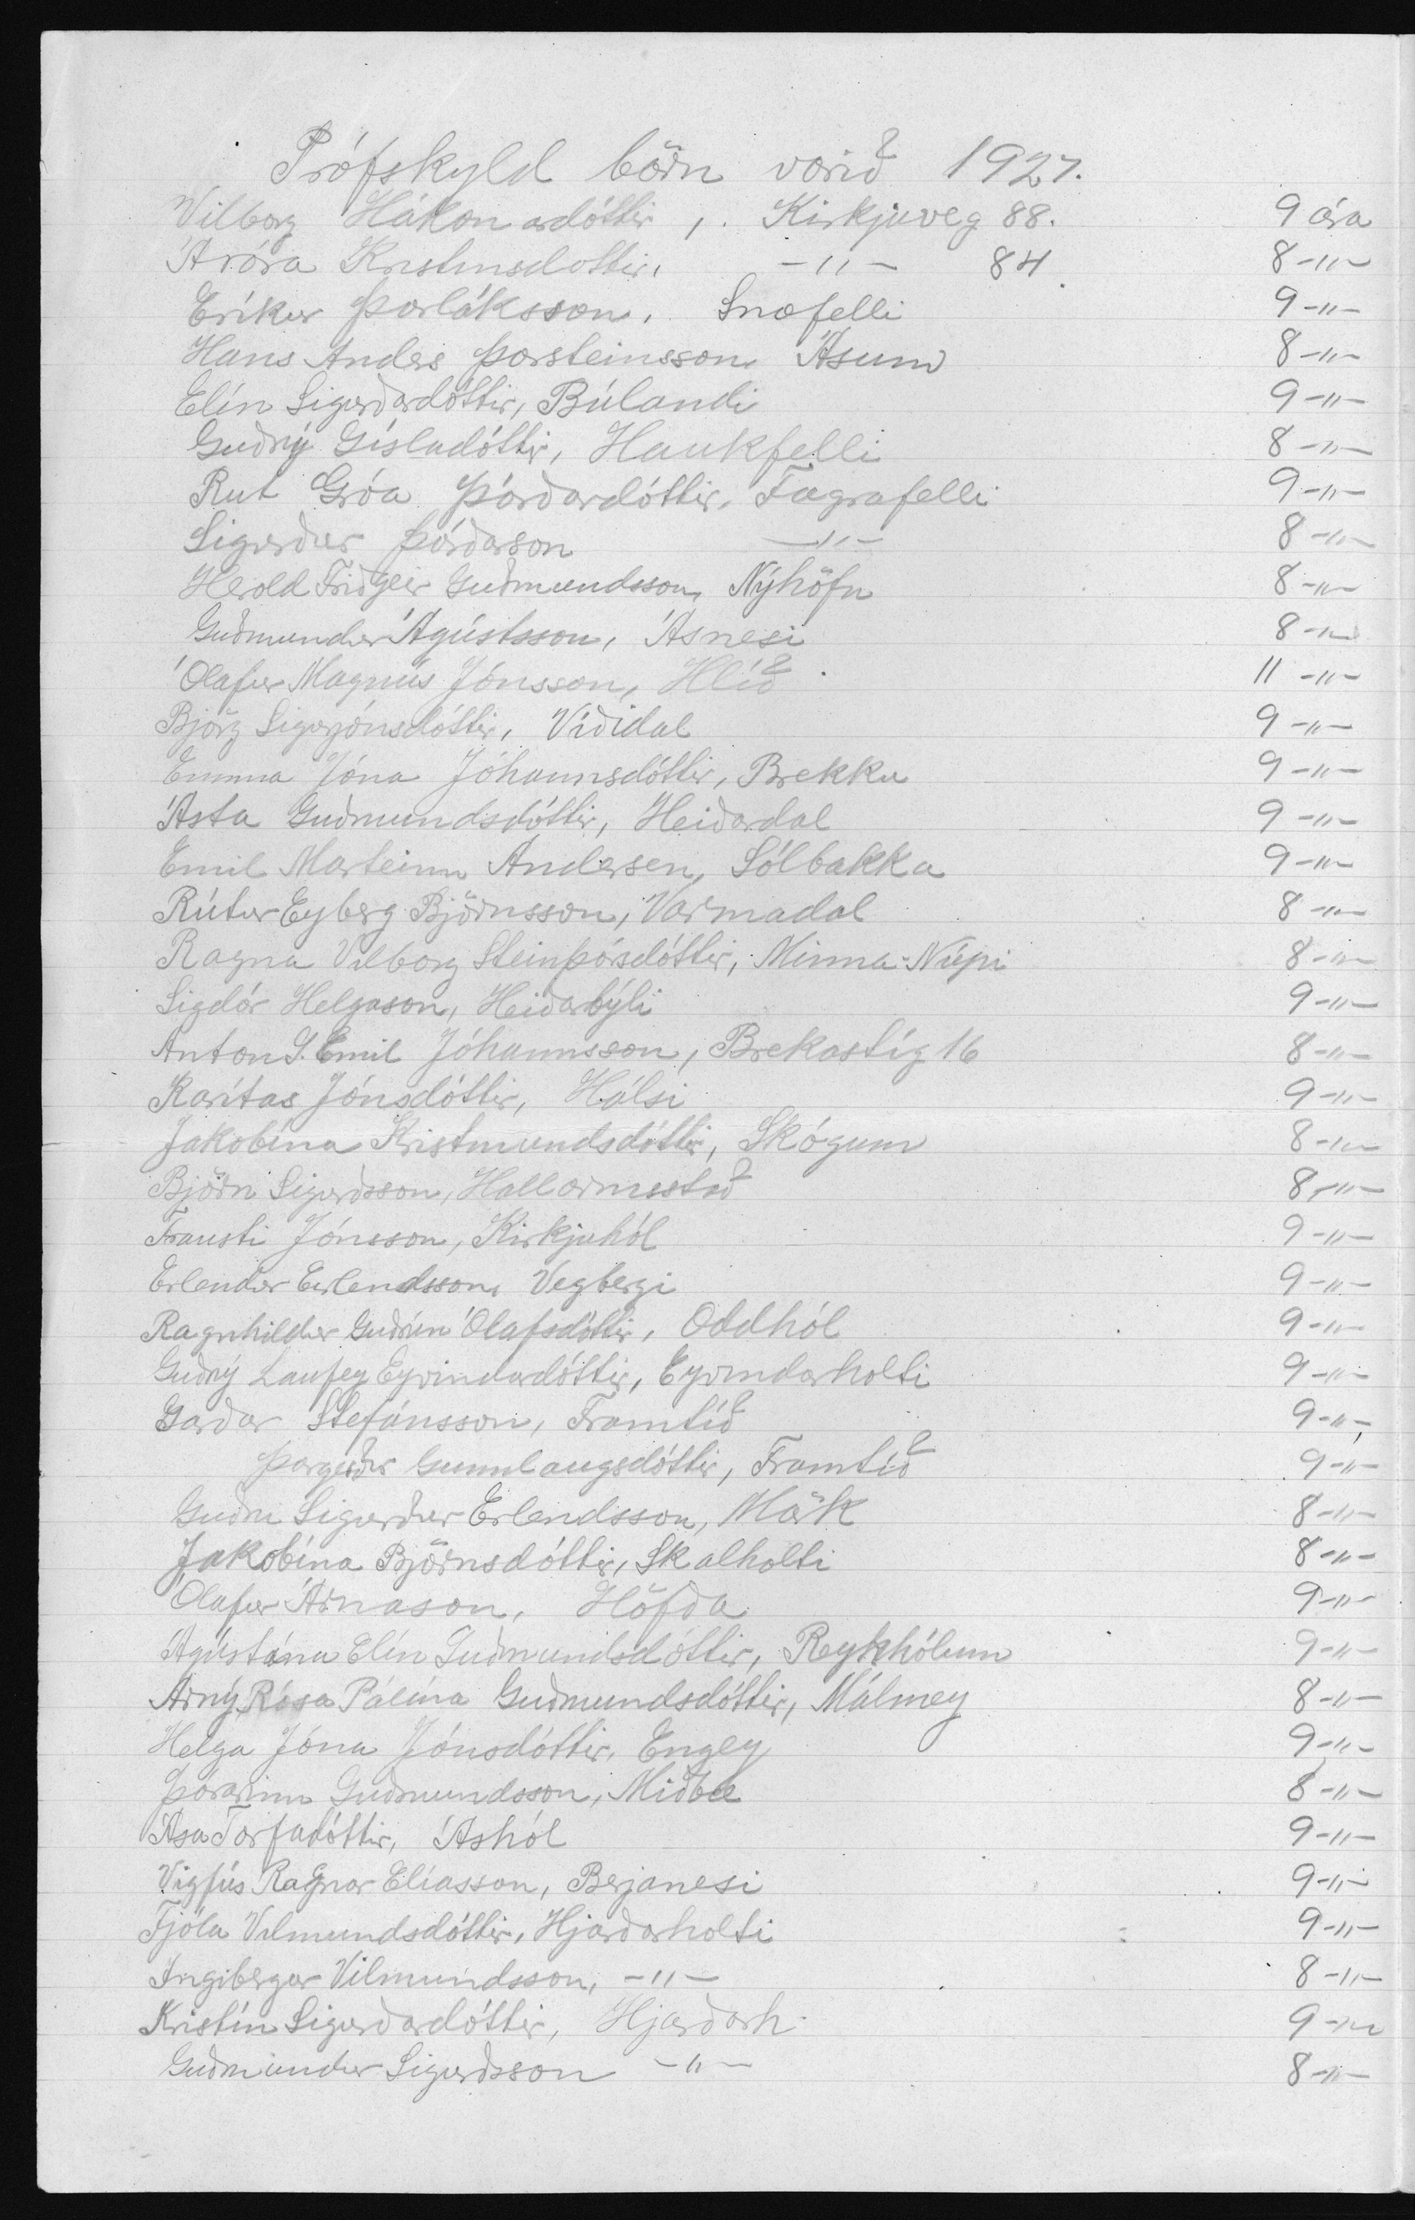 Prófskyld börn vorið 1927.
Vilborg Hákonardóttir, Kirkjuveg 88. 9 ára
Áróra Kristinsdóttir, -"- 84. 8 -"-
Eríkur Þorláksson, Snæfelli 9 -"-
Hans Anders Þorsteinsson, Ásum 8 -"-
Elín Sigurðardóttir, Búlandi 9 -"-
Guðný Gísladóttir, Haukfelli 8 -"-
Rut Gróa Þórðardóttir, Fagrafelli 9 -"-
Sigurður Þórðarson -"- 8 -"-
Herold Friðgeir Guðmundsson, Nýhöfn 8 -"-
Guðmundur Ágústsson, Ásnesi 8 -"-
Ólafur Magnús Jónsson, Hlíð 11 -"-
Björg Sigurjónsdóttir, Víðidal 9 -"-
Emma Jóna Jóhannsdóttir, Brekku 9 -"-
Ásta Guðmundsdóttir, Heiðardal 9 -"-
Emil Marteinn Andersen, Sólbakka 9 -"-
Rútur Eyberg Björnsson, Varmadal 8 -"-
Ragna Vilborg Steinþórsdóttir, Minna-Núpi 8 -"-
Sigdór Helgason, Heiðarbýli 9 -"-
Anton J. Emil Jóhannsson, Brekastíg 16 8 -"-
Karítas Jónsdóttir, Hálsi 9 -"-
Jakobína Kristmundsdóttir, Skógum 8 -"-
Björn Sigurðsson, Hallormsstað 8 -"-
Trausti Jónsson, Kirkjuhól 9 -"-
Erlendur Erlendsson, Vegbergi 9 -"-
Ragnhildur Guðrún Ólafsdóttir, Oddhól 9 -"-
Guðný Laufey Eyvindardóttir, Eyvindarholti 9 -"-
Garðar Stefánsson, Framtíð 9 -"-
Þorgerður Gunnlaugsdóttir, Framtíð 9 -"-
Guðni Sigurður Erlendsson, Mörk 8 -"-
Jakobína Björnsdóttir, Skalholti 8 -"-
Ólafur Árnason, Höfða 9 -"-
Ágústína Elín Guðmundsdóttir, Reykhólum 9 -"-
Árný Rósa Pálína Guðmundsdóttir, Málmey 8 -"-
Helga Jóna Jónsdóttir, Engey 9 -"-
Þórarinn Guðmundsson, Miðbæ 8 -"-
Ása Torfadóttir, Áshól 9 -"-
Vigfús Ragnar Elíasson, Berjanesi 9 -"-
Fjóla Vilmundsdóttir, Hjarðarholti 9 -"-
Ingibergur Vilmundsson, -"- 8 -"-
Kristín Sigurðardóttir, Hjarðarh. 9 -"-
Guðmundur Sigurðsson -"- 8 -"-